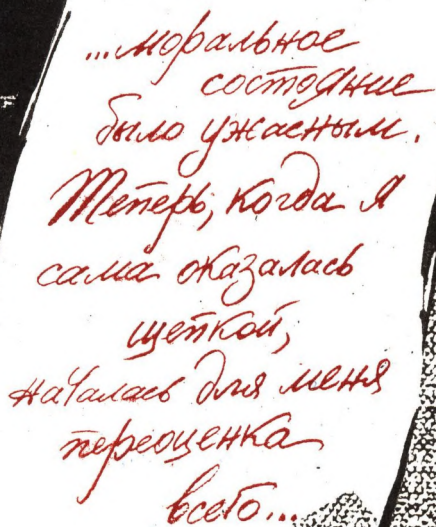 ...моральное
состояние
было ужасным.
Теперь, когда я
сама оказалась
щепкой,
началась для меня
переоценка
всего...